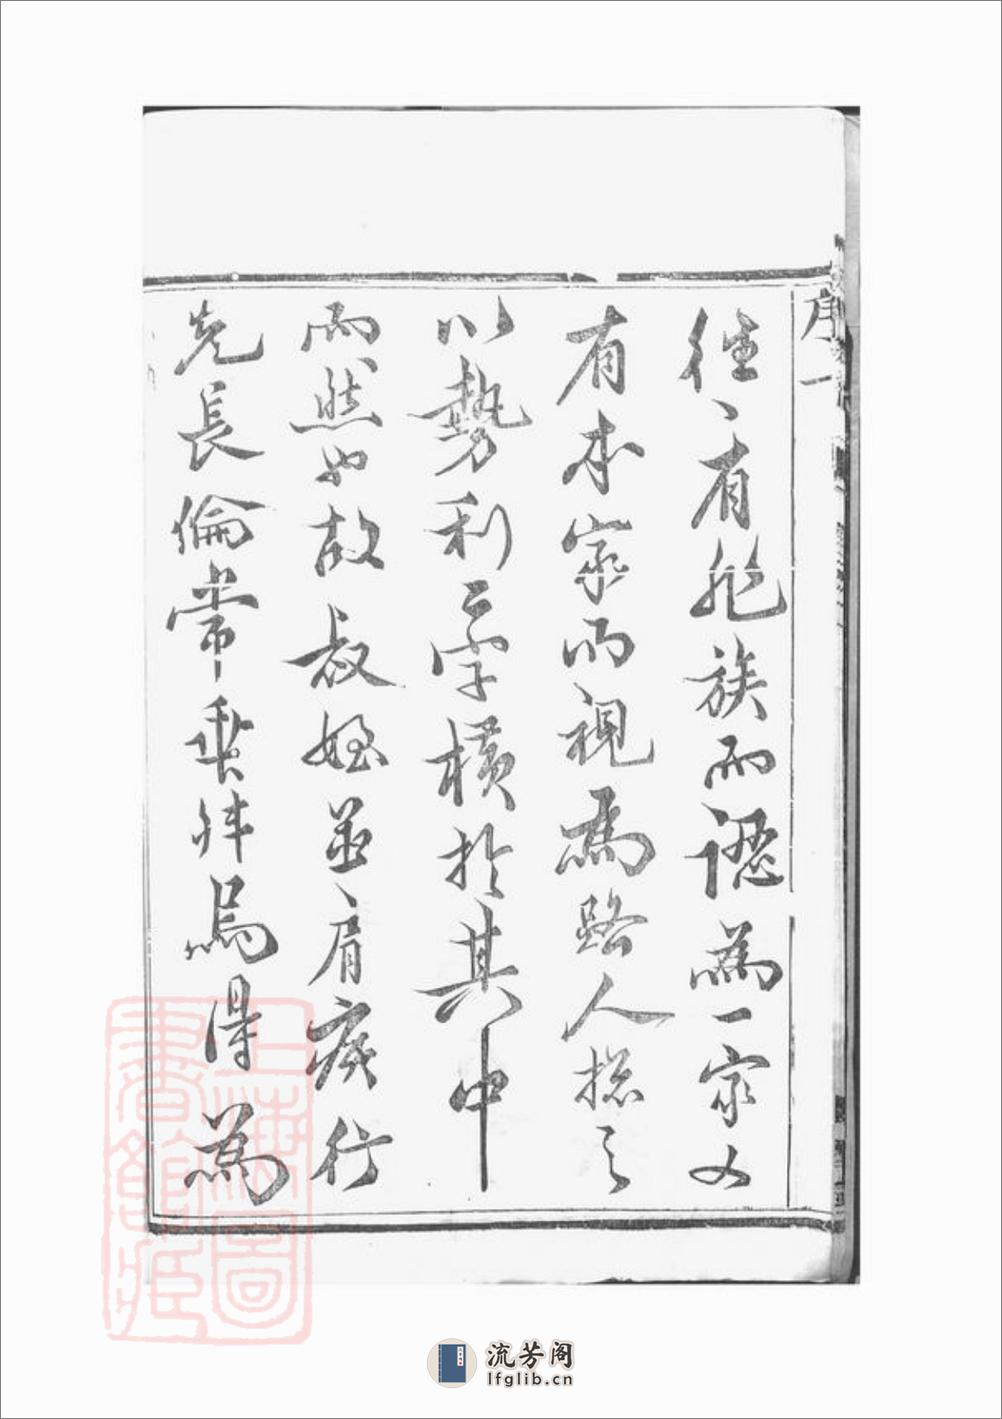 序一
往〻有非族而認為一家又
有本家而視為路人揔之
以勢利二字橫於其中
而然也故叔姪並肩疾行
先長倫常乖舛焉得為
上海圖
書館藏
流芳阁
lfglib.cn